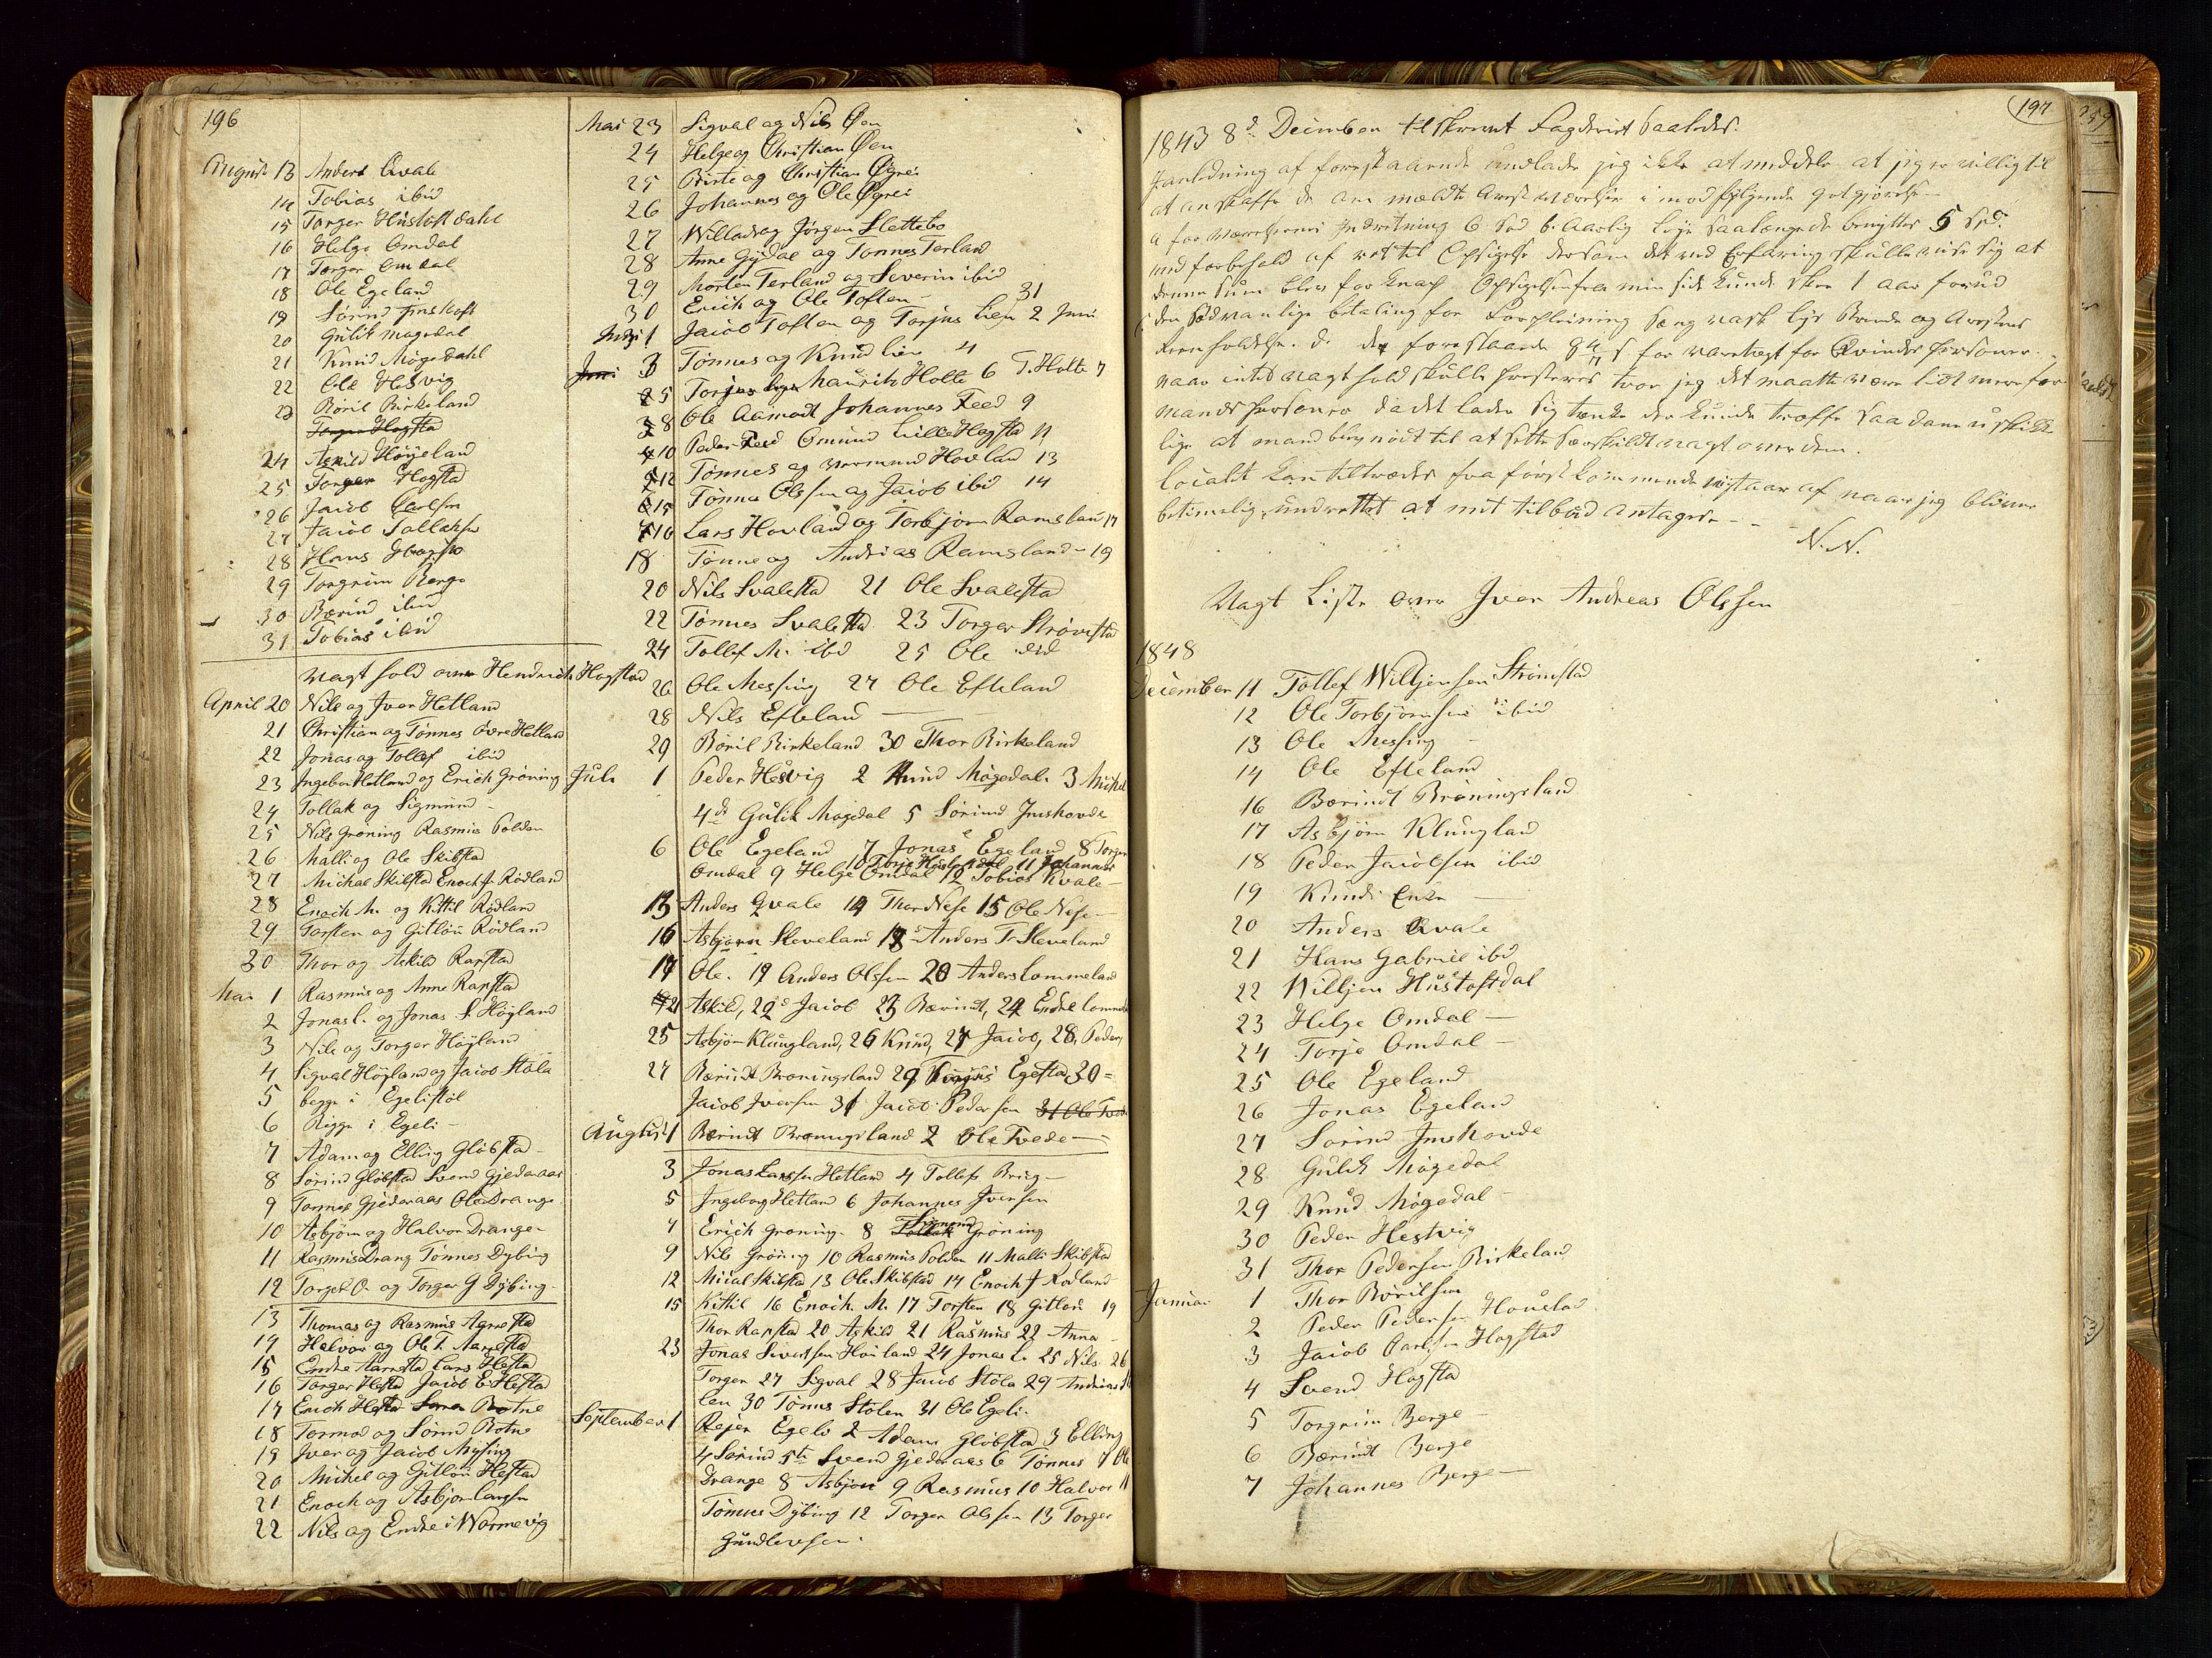 196
August 13 Anders Qvale
14 Tobias ibid
15 Torger Hustoftdahl
16 Helge Omdal
17 Torger Omdal
18 Ole Egeland
19 Sørend
20 Gulik Møgedal
21 Knud Møgedahl
22 Ole Hesvig
23 Børil Birkeland
Torger Hogstad
24 Askild Høyeland
25 Torger Hogstad
26 Jacob Carlsen
27 Jacob Tollaksen
28 Hans
29 Torgrim Berge
30 Bærind ibid
31 Tobias ibid
Vagt hold over Hendrich Hogstad
April 20 Nils og Iver Hetland
21 Christian og Tønnes øvre Hetland
22 Jonas og Tollef ibid
23 Ingebor Hetland og Erich Grøning
24 Tollak og Sigmund
25 Nils Grøning Rasmus Polden
26 Malli og Ole Skibstad
27 Michal Skibstad Enoch J. Rødland
28 Enoch M. og Kittil Rødland
29 Torsten og Gitlou Rødland
30 Thor og Askild Rapstad
Mai 1 Rasmus og Anne Rapstad
2 Jonas L. og Jonas S. Høyland
3 Nils og Torger Høyland
4 Sigval Høyland og Jacob Støla
5 begge i Egelistøl
6 Begge i Egeli
7 Adam og Elling Gløbstad
8 Sørind Gløbstad Svend Gjedeaas
9 Tønnes Gjederaas Ole Drange
10 Asbjørn og Halvor Drange
11 Rasmus Drang Tønnes Dybing
12 Torger O. og Torger G Dybing
13 Thomas og Rasmus Aarrestad
14 Halvor og Ole T. Aarrestad
15 Endre Aarrestad Lars Hestad
16 Torger Hestad Jacob E. Hestad
17 Erich Hestad Botne
18 Tormod og Sørend Botne
19 Iver og Jacob Mysing
20 Michel og Gitlou Hestad
21 Enoch og Asbjørn Larsen
22 Nils og Endre i Warmevig
Mai 23 Sigval og Nils Øen
24 Helge og Christian Øen
25 Birte og Christian Øgrei
26 Johannes og Ole Øgrei
27 Willads og Jørgen Slettebo
28 Anne Gydal og Tønnes Terland
29 Morten Terland og Severin ibid
30 Erich og Ole Toften 31
Juni 1 Jacob Toften og Torjus Lien 2 Juni
Juni 3 Tønnes og Knud Lien 4
5 Torjus Mauritz Holte 6 T. Holte 7
8 Ole Aamodt Johannes Feed 9
10 Peder Feed Omund Lille Hogstad 11
12 Tønnes og Hovland 13
Tønnes Olsen og Jacob ibid 14
16 Lars Hovland og Torbjørn Ramsland 17
18 Tønne og Andreas Ramsland 19
20 Nils Svalestad 21 Ole Svalestad
22 Tønnes Svalestad 23 Torger Strømstad
24 Tollef M. ibid 25 Ole ibid
26 Ole Messing 27 Ole Efteland
28 Nils Efteland
29 Børil Birkeland 30 Thor Birkeland
Juli 1 Peder Hesvig 2 Knud Møgedal 3 Michel
4de Gulik Møgedal 5 Sørind Imshovde
6 Ole Egeland 7 Jonas Egeland 8 Torger
Omdal 9 Helge Omdal 10 Torje Hustoftdal 11 Johannes 12 Tobias Kvale
13 Anders Qvale 14 Thor Nese 15 Ole Nese
16 Asbjørn Sleveland 18 Anders T. Sleveland
17 Ole. 19 Anders Olsen 20 Anders Lommeland
21 Askild, 22 Jacob 23 Bærindt, 24 Endre Lommeland
25 Asbjørn Klungland, 26 Knud, 27 Jacob, 28, Peder,
27 Bærindt Broningsland 29 Torjus Egestad 30
Jacob Iversen 31 Jacob Pedersen 31 Ole Tvede
August 1 Bærindt Broningsland 2 Ole Tvede
3 Jonas Larsen Hetland 4 Tollef Brieg
5 Ingeborg Hetland 6 Johannes Iversen
7 Erich Grøning 8 Tollak Sigmund Grøning
9 Nils Grøning 10 Rasmus Polden 11 Malli Skibstad
12 Micial Skibstad 13 Ole Skibstad 14 Enoch J Rødland
15 Kittil 16 Enoch M. 17 Torsten 18 Gitlou 19
Thor Rapstad 20 Askild 21 Rasmus 22 Anna
23 Jonas Sivertsen Høiland 24 Jonas L. 25 Nils. 26
Torger 27 Sigval 28 Jacob Støla 29 Andreas
len 30 Tønnes Stølen 31 Ole Egeli.
September 1 Rejer Egeli 2 Adam Gløbstad 3 Elling
4 Sørind 5te Svend Gjederaas 6 Tønnes 7 Ole
Drange 8 Asbjørn 9 Rasmus 10 Halvor 11
Tønnes Dybing 12 Torger Olsen 13 Torger
Gundlevsen.
197
1843 8d December tilskrevet Fogderiet saaledes:
I anledning af forestaaende undlader jeg ikke at meddele at jeg er villig til
at anskaffe de anmældte Arrestværelser imod følgende godtgjørelse
a for værelsernes Indretning 6 Spd b. Aarlig Leje saalænge de benyttes 5 Spd.
med forbehold af ret til Opsigelse dersom det ved Erfaring skulle vise sig at
denne sum blev for knap Opsigelsen fra min side kunde skee 1 aar forud
c den sædvanlige betaling for Forpleining Seng vask lys Brende og Arrestens
reenholdelse. d. de forestaaende for varetægt for Qvindes personer.
naar intet vagthold skulle præsteres tror jeg det maatte være lidt mere for
mands personer da det lader sig tænke der kunde træffe saadanne uskikke
lige at mand blev nødt til at sette særskildt vagt over dem.
Localet kan tiltrædes fra førstkommende nytaar af naar jeg bliver
betimelig underrettet at mit tilbud antages
N. N.
Vagt Liste over Iver Andreas Olsen
1848
December 11 Tollef Willjensen Strømstad
12 Ole Torbjørnsen ibid
13 Ole Messing
14 Ole Efteland
16 Bærindt Brøningsland
17 Asbjørn Klungland
18 Peder Jacobsen ibid
19 Knuds Enke
20 Anders Qvale
21 Hans Gabriel ibd
22 Willjen Hustoftdal
23 Helge Omdal
24 Torje Omdal
25 Ole Egeland
26 Jonas Egeland
27 Sørind Imshovde
28 Gulik Møgedal
29 Knud Møgedal
30 Peder Hestvig
31 Thor Pedersen Birkeland
Januar 1 Thor Børilsen
2 Peder Pedersen
3 Jacob Carlsen Hogstad
4 Svend Hogstad
5 Torgrim Berge
6 Bærindt Berge
7 Johannes Berge